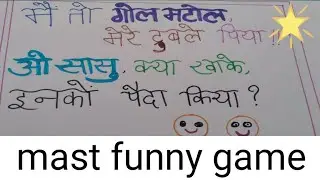 मैं तो गोल मटोल,
मेरे दुबले पिया !!
ओ सासु, क्या खाके,
इनकों पैदा किया ?
mast funny game